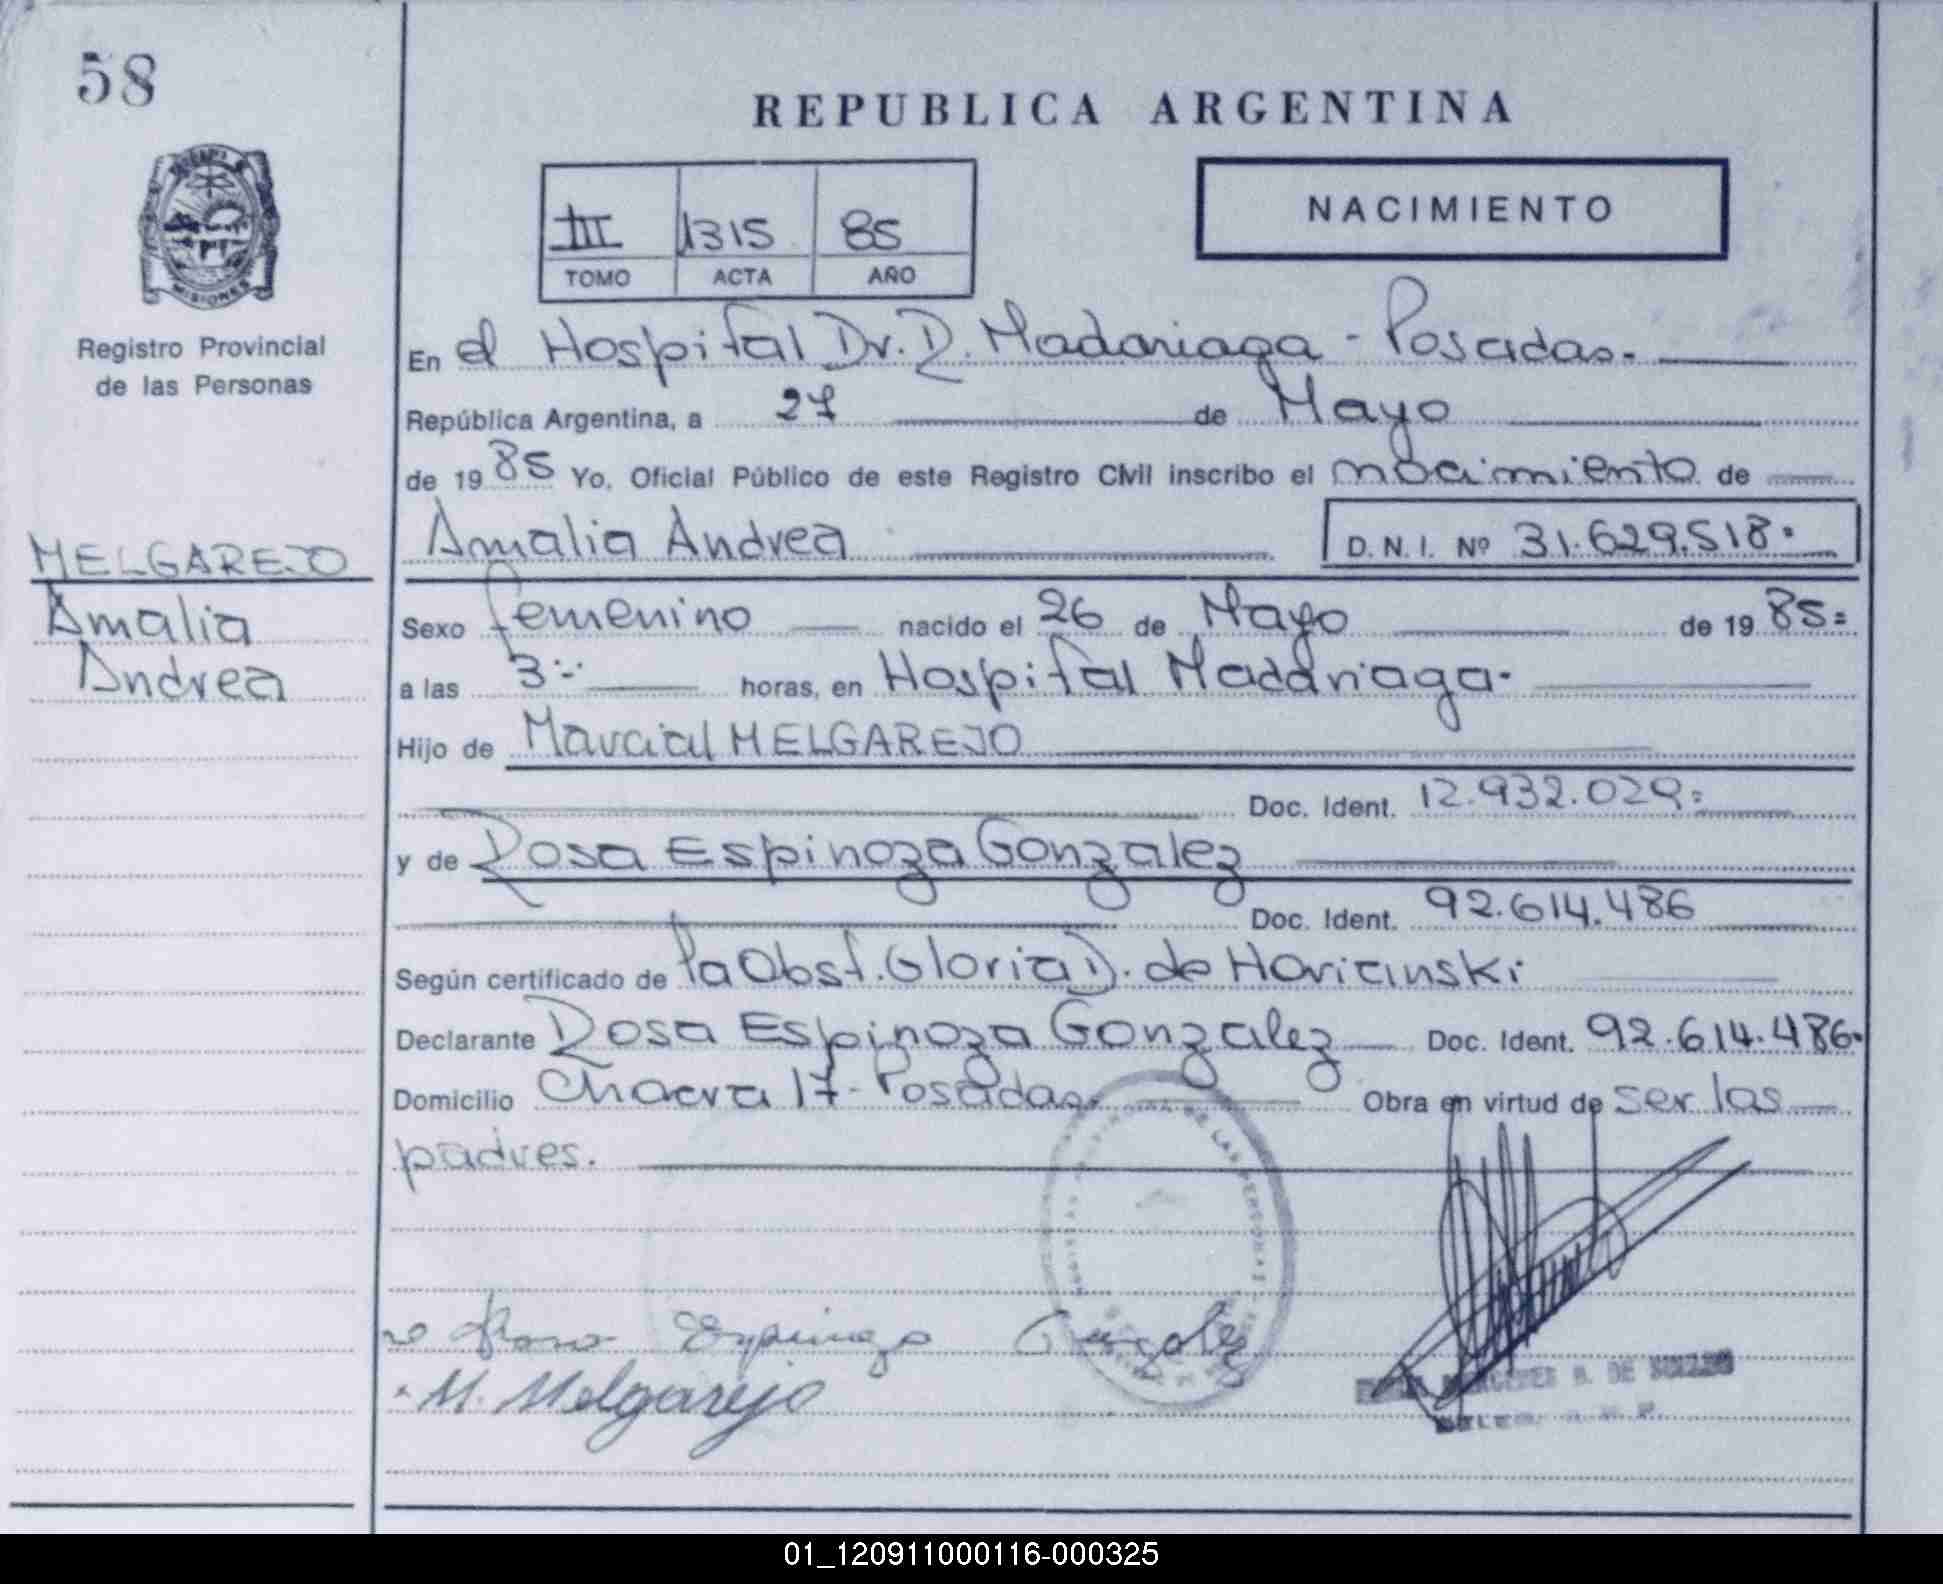 58
REPUBLICA ARGENTINA
MISIONES
Registro Provincial
de las Personas
III 1315 85
TOMO ACTA AÑO
NACIMIENTO
En el Hospital Dr. R. Madariaga - Posadas.
República Argentina, a 27 de Mayo
de 1985 Yo, Oficial Público de este Registro Civil inscribo el nacimiento de
Amalia Andrea D.N.I. Nº 31.629.518.
MELGAREJO
Amalia
Andrea
Sexo femenino nacido el 26 de Mayo de 1985=
a las 3:- horas, en Hospital Madariaga.
Hijo de Marcial MELGAREJO
Doc. Ident. 12.932.029=
y de Rosa Espinoza Gonzalez
Doc. Ident. 92.614.486
Según certificado de la Obst. Gloria D. de
Declarante Rosa Espinoza Gonzalez Doc. Ident. 92.614.486.
Domicilio Chacra 17 - Posadas. Obra en virtud de ser los
padres.
DE LAS PERSONAS
Rosa Espinoza Gonzalez
M. Melgarejo
MERCEDES B. DE
01_120911000116-000325